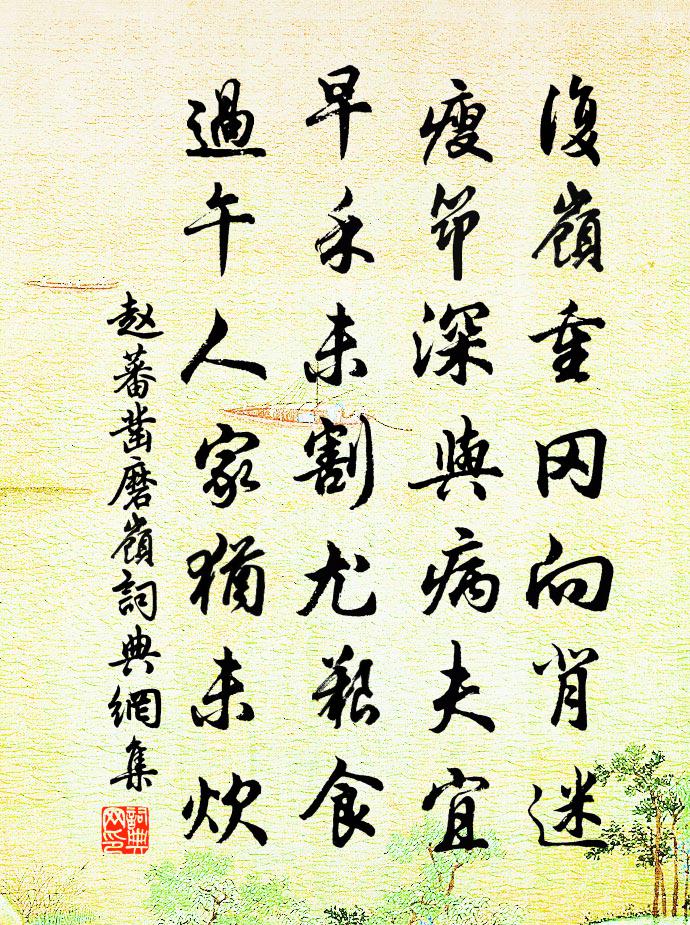 復嶺重冈向背迷
瘦筇深與病夫宜
早禾未割尤艱食
過午人家猶未炊
赵蕃凿磨嶺詞典網集
詞典網印